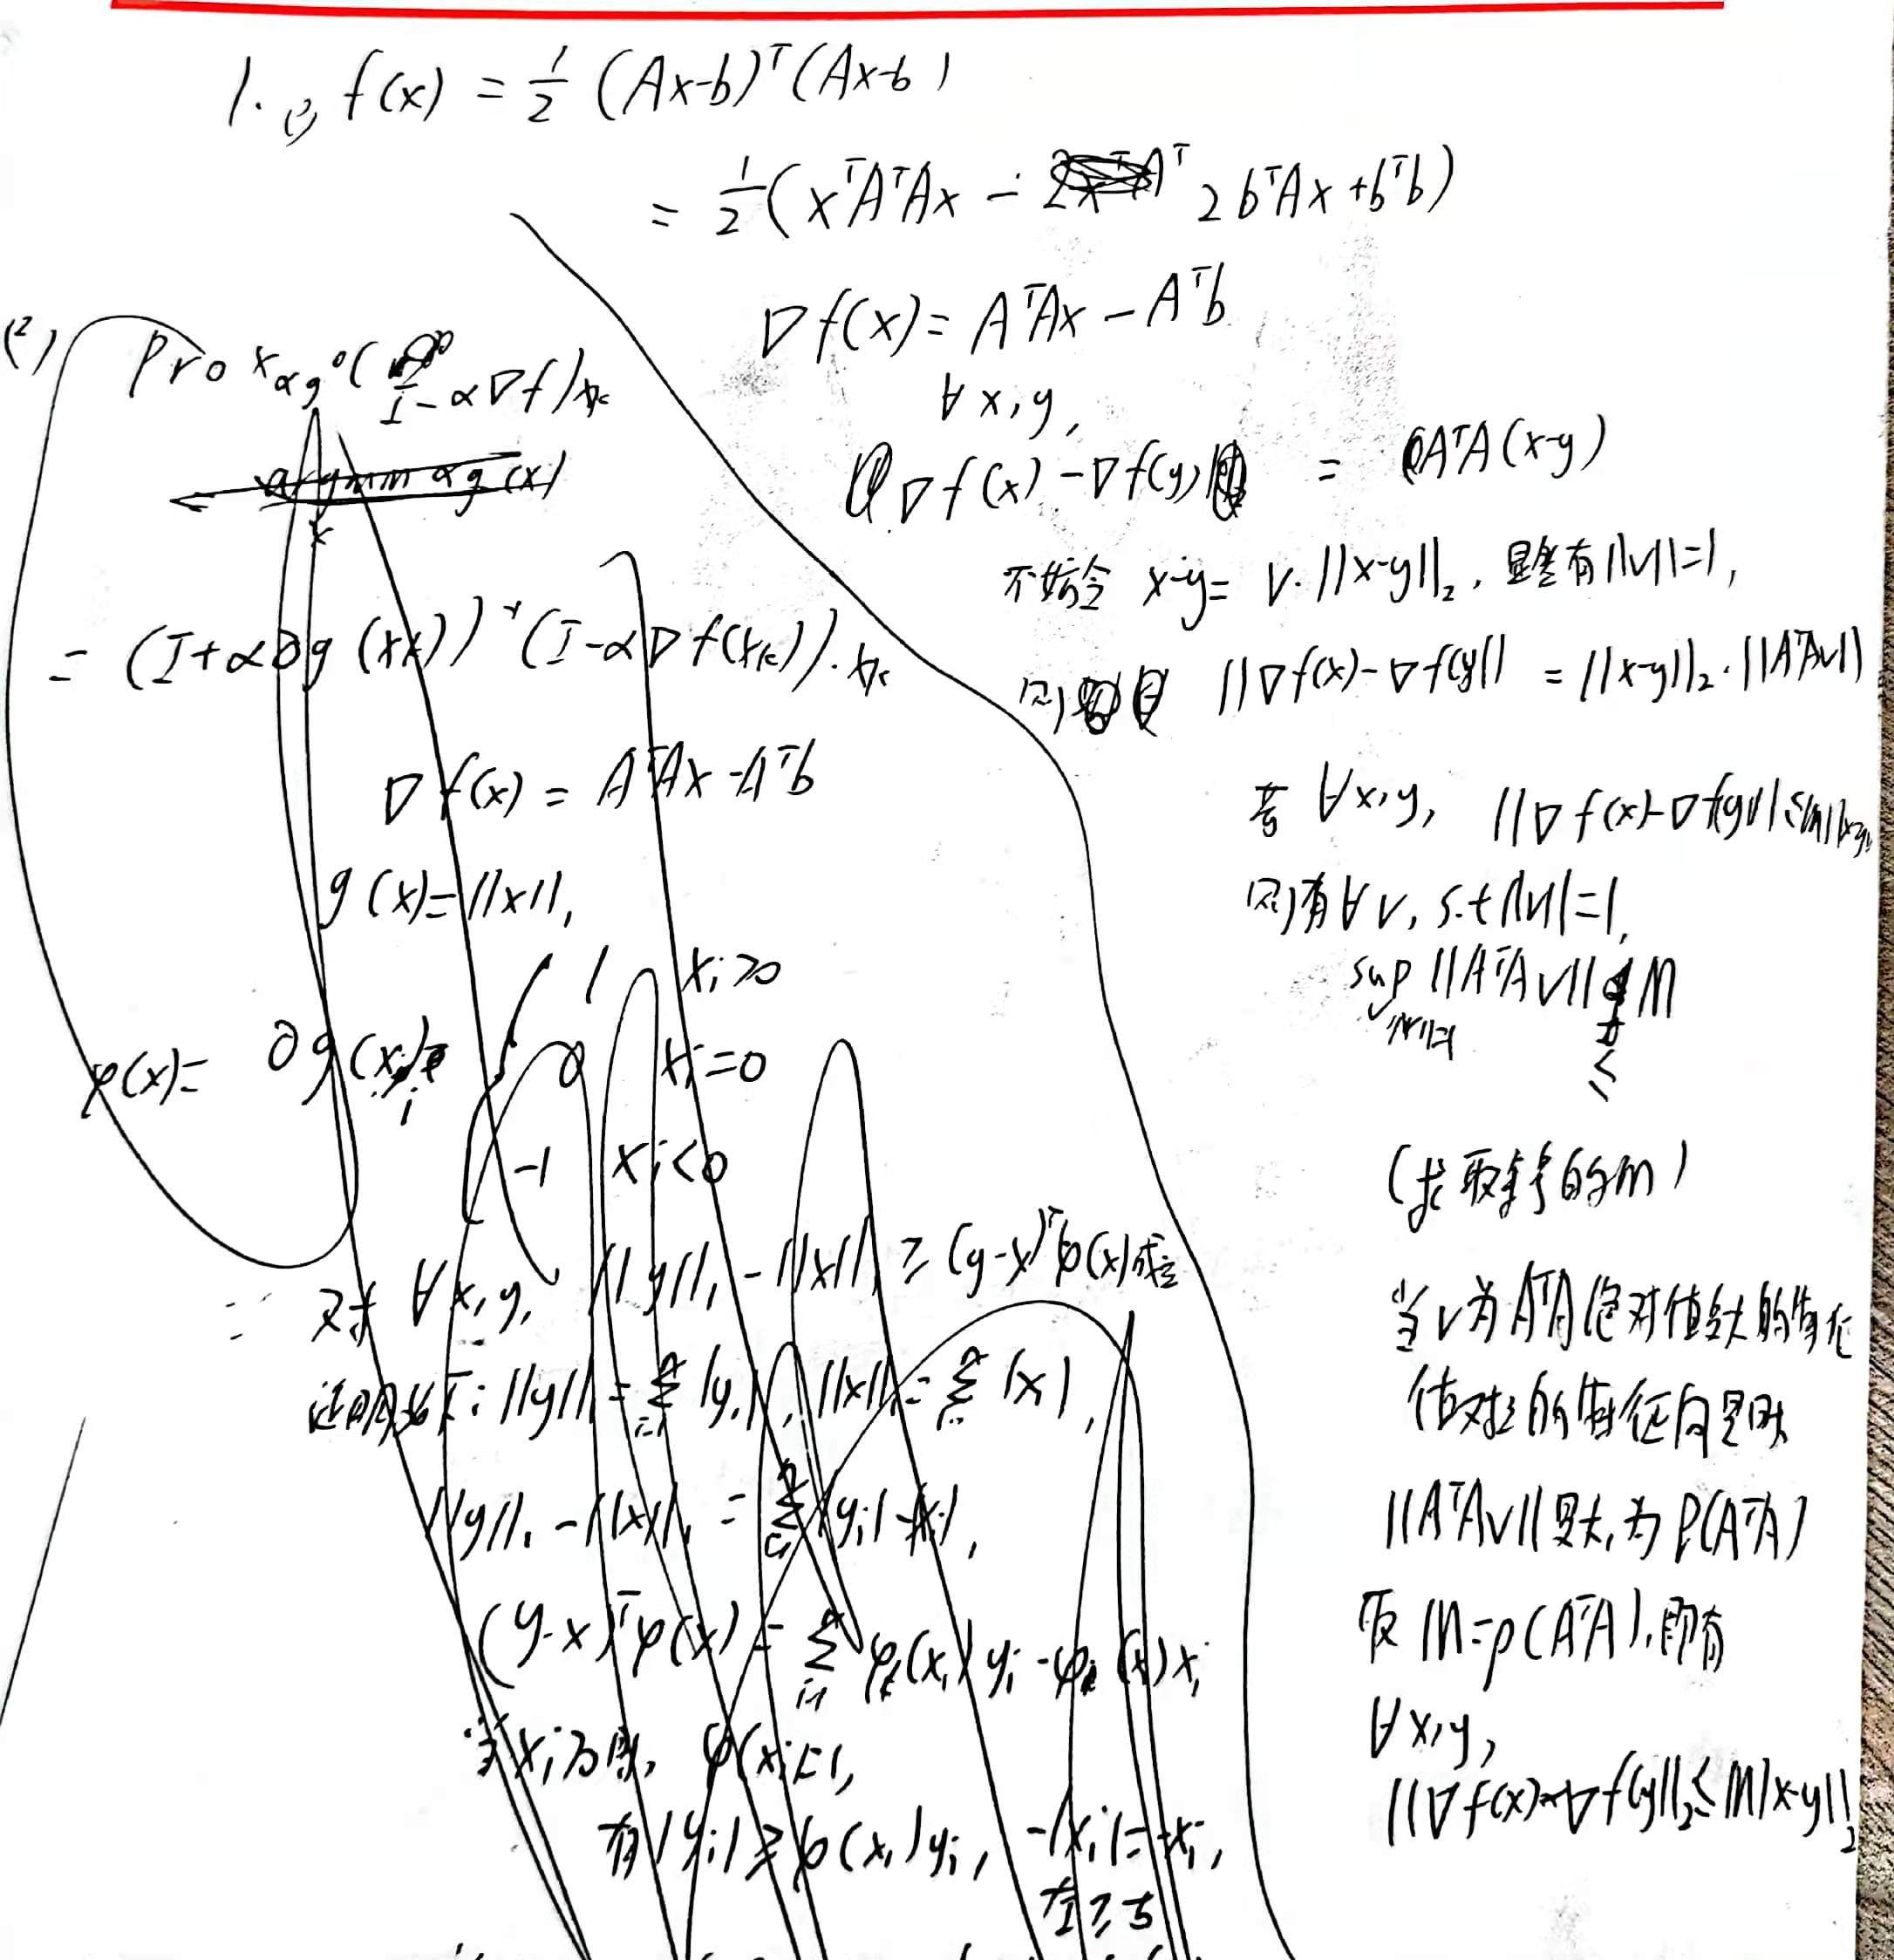 1. (1) f(x) = 1/2 (Ax-b)ᵀ(Ax-b)
= 1/2 (xᵀAᵀAx - 2bᵀAx + bᵀb)
∇f(x) = AᵀAx - Aᵀb
∀x,y,
∇f(x) - ∇f(y) = AᵀA(x-y)
不妨令 x-y = v·||x-y||₂, 显然有||v||=1,
则 ||∇f(x)-∇f(y)|| = ||x-y||₂·||AᵀAv||
若 ∀x,y, ||∇f(x)-∇f(y)|| ≤ M||x-y||
则有∀v, s.t ||v||=1,
sup ||AᵀAv|| ≤ M
v,||v||=1
当v为AᵀA绝对值最大的特征
值对应的特征向量时
||AᵀAv||最大,为ρ(AᵀA)
取M=ρ(AᵀA),即有
∀x,y,
||∇f(x)-∇f(y)||₂ ≤ M||x-y||₂
(2) prox αg∘(I-α∇f)xₖ
argmin αg(x)
x
= (I+α∂g(xₖ))⁻¹(I-α∇f(xₖ))·xₖ
∇f(x) = AᵀAx-Aᵀb
g(x)=||x||₁
φ(x)= ∂g(x)ᵢ = { 1 xᵢ>0
0 xᵢ=0
-1 xᵢ<0
对∀x,y, ||y||₁-||x||₁ ≥ (y-x)ᵀφ(x)成立
证明如下: ||y||₁ = Σ|yᵢ|, ||x||₁ = Σ|xᵢ|,
||y||₁-||x||₁ = Σ|yᵢ|-|xᵢ|,
(y-x)ᵀφ(x) = Σ φᵢ(x)yᵢ-φᵢ(x)xᵢ
当xᵢ>0时, φ(xᵢ)=1,
有|yᵢ| ≥ φ(xᵢ)yᵢ, -|xᵢ|=-xᵢ,
左≥右